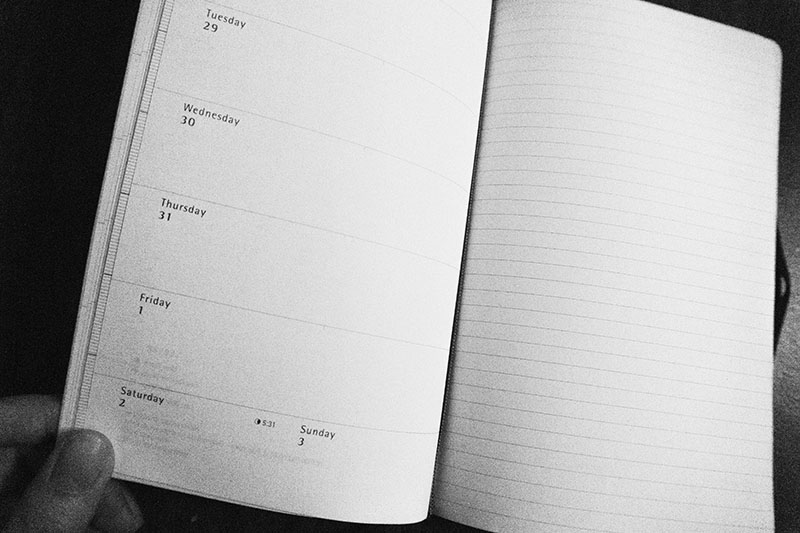 Tuesday
29
Wednesday
30
Thursday
31
Friday
1
Saturday
2
5:31
Sunday
3